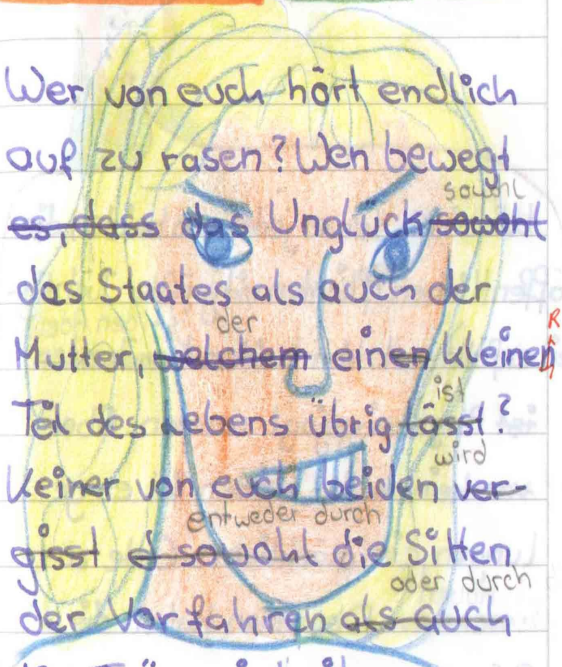 Wer von euch hört endlich
auf zu rasen? Wen bewegt
sowohl
es, dass das Unglück sowohl
das Staates als auch der
der
Mutter, welchem einen kleinen R
ist
Teil des Lebens übrig lässt?
wird
Keiner von euch beiden ver-
entweder durch
gisst d sowohl die Sitten
oder durch
der Vorfahren als auch